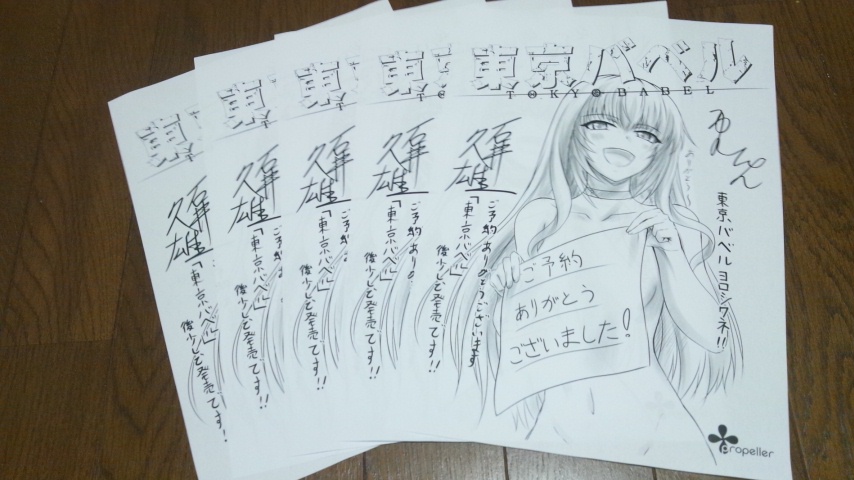 東
東
東
東
東京バベル
TOKYO BABEL
ありがとう
東京バベル ヨロシクネ!!
ご予約ありがとうございます
「東京バベル」
後少しで発売です!!
ご予約
ありがとう
ございました!
propeller
ご予約あり
「東京バベル」
後少しで発売です!!
ご予約
「東京バベル」
後少しで発売です!!
ご予約
「東京バベル」
後少しで発売です!!
東京バベル」
後少しで発売です!